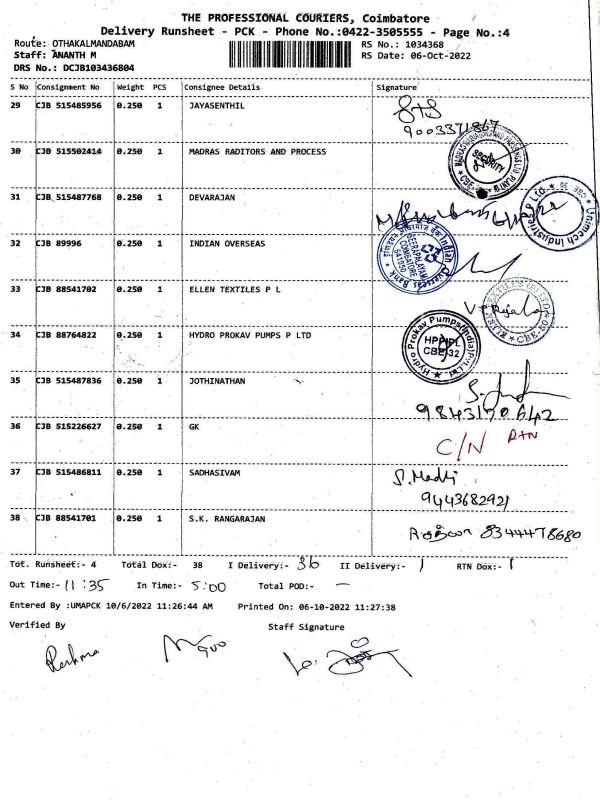 THE PROFESSIONAL COURIERS, Coimbatore
Delivery Runsheet - PCK - Phone No.:0422-3505555 - Page No.:4
Route: OTHAKALMANDABAM
RS No.: 1034368
Staff: ANANTH M
RS Date: 06-Oct-2022
DRS No.: DCJB103436804
S No Consignment No Weight PCS Consignee Details Signature
29 CJB 515485956 0.250 1 JAYASENTHIL
9003371867
30 CJB 515502414 0.250 1 MADRAS RADITORS AND PROCESS
SECURITY
31 CJB 515487768 0.250 1 DEVARAJAN
32 CJB 89996 0.250 1 INDIAN OVERSEAS
Indian Overseas Bank
COIMBATORE
33 CJB 88541702 0.250 1 ELLEN TEXTILES P L
34 CJB 88764822 0.250 1 HYDRO PROKAV PUMPS P LTD
Hydro Prokav Pumps(India)Pvt.Ltd
HPPIPL
CBE-32
35 CJB 515487836 0.250 1 JOTHINATHAN
9843170642
36 CJB 515226627 0.250 1 GK
C/N RTN
37 CJB 515486811 0.250 1 SADHASIVAM
9443682921
38 CJB 88541701 0.250 1 S.K. RANGARAJAN
8344478680
Tot. Runsheet:- 4 Total Dox:- 38 I Delivery:- 36 II Delivery:- 1 RTN Dox:- 1
Out Time:- 11:35 In Time:- 5:00 Total POD:- —
Entered By :UMAPCK 10/6/2022 11:26:44 AM Printed On: 06-10-2022 11:27:38
Verified By Staff Signature